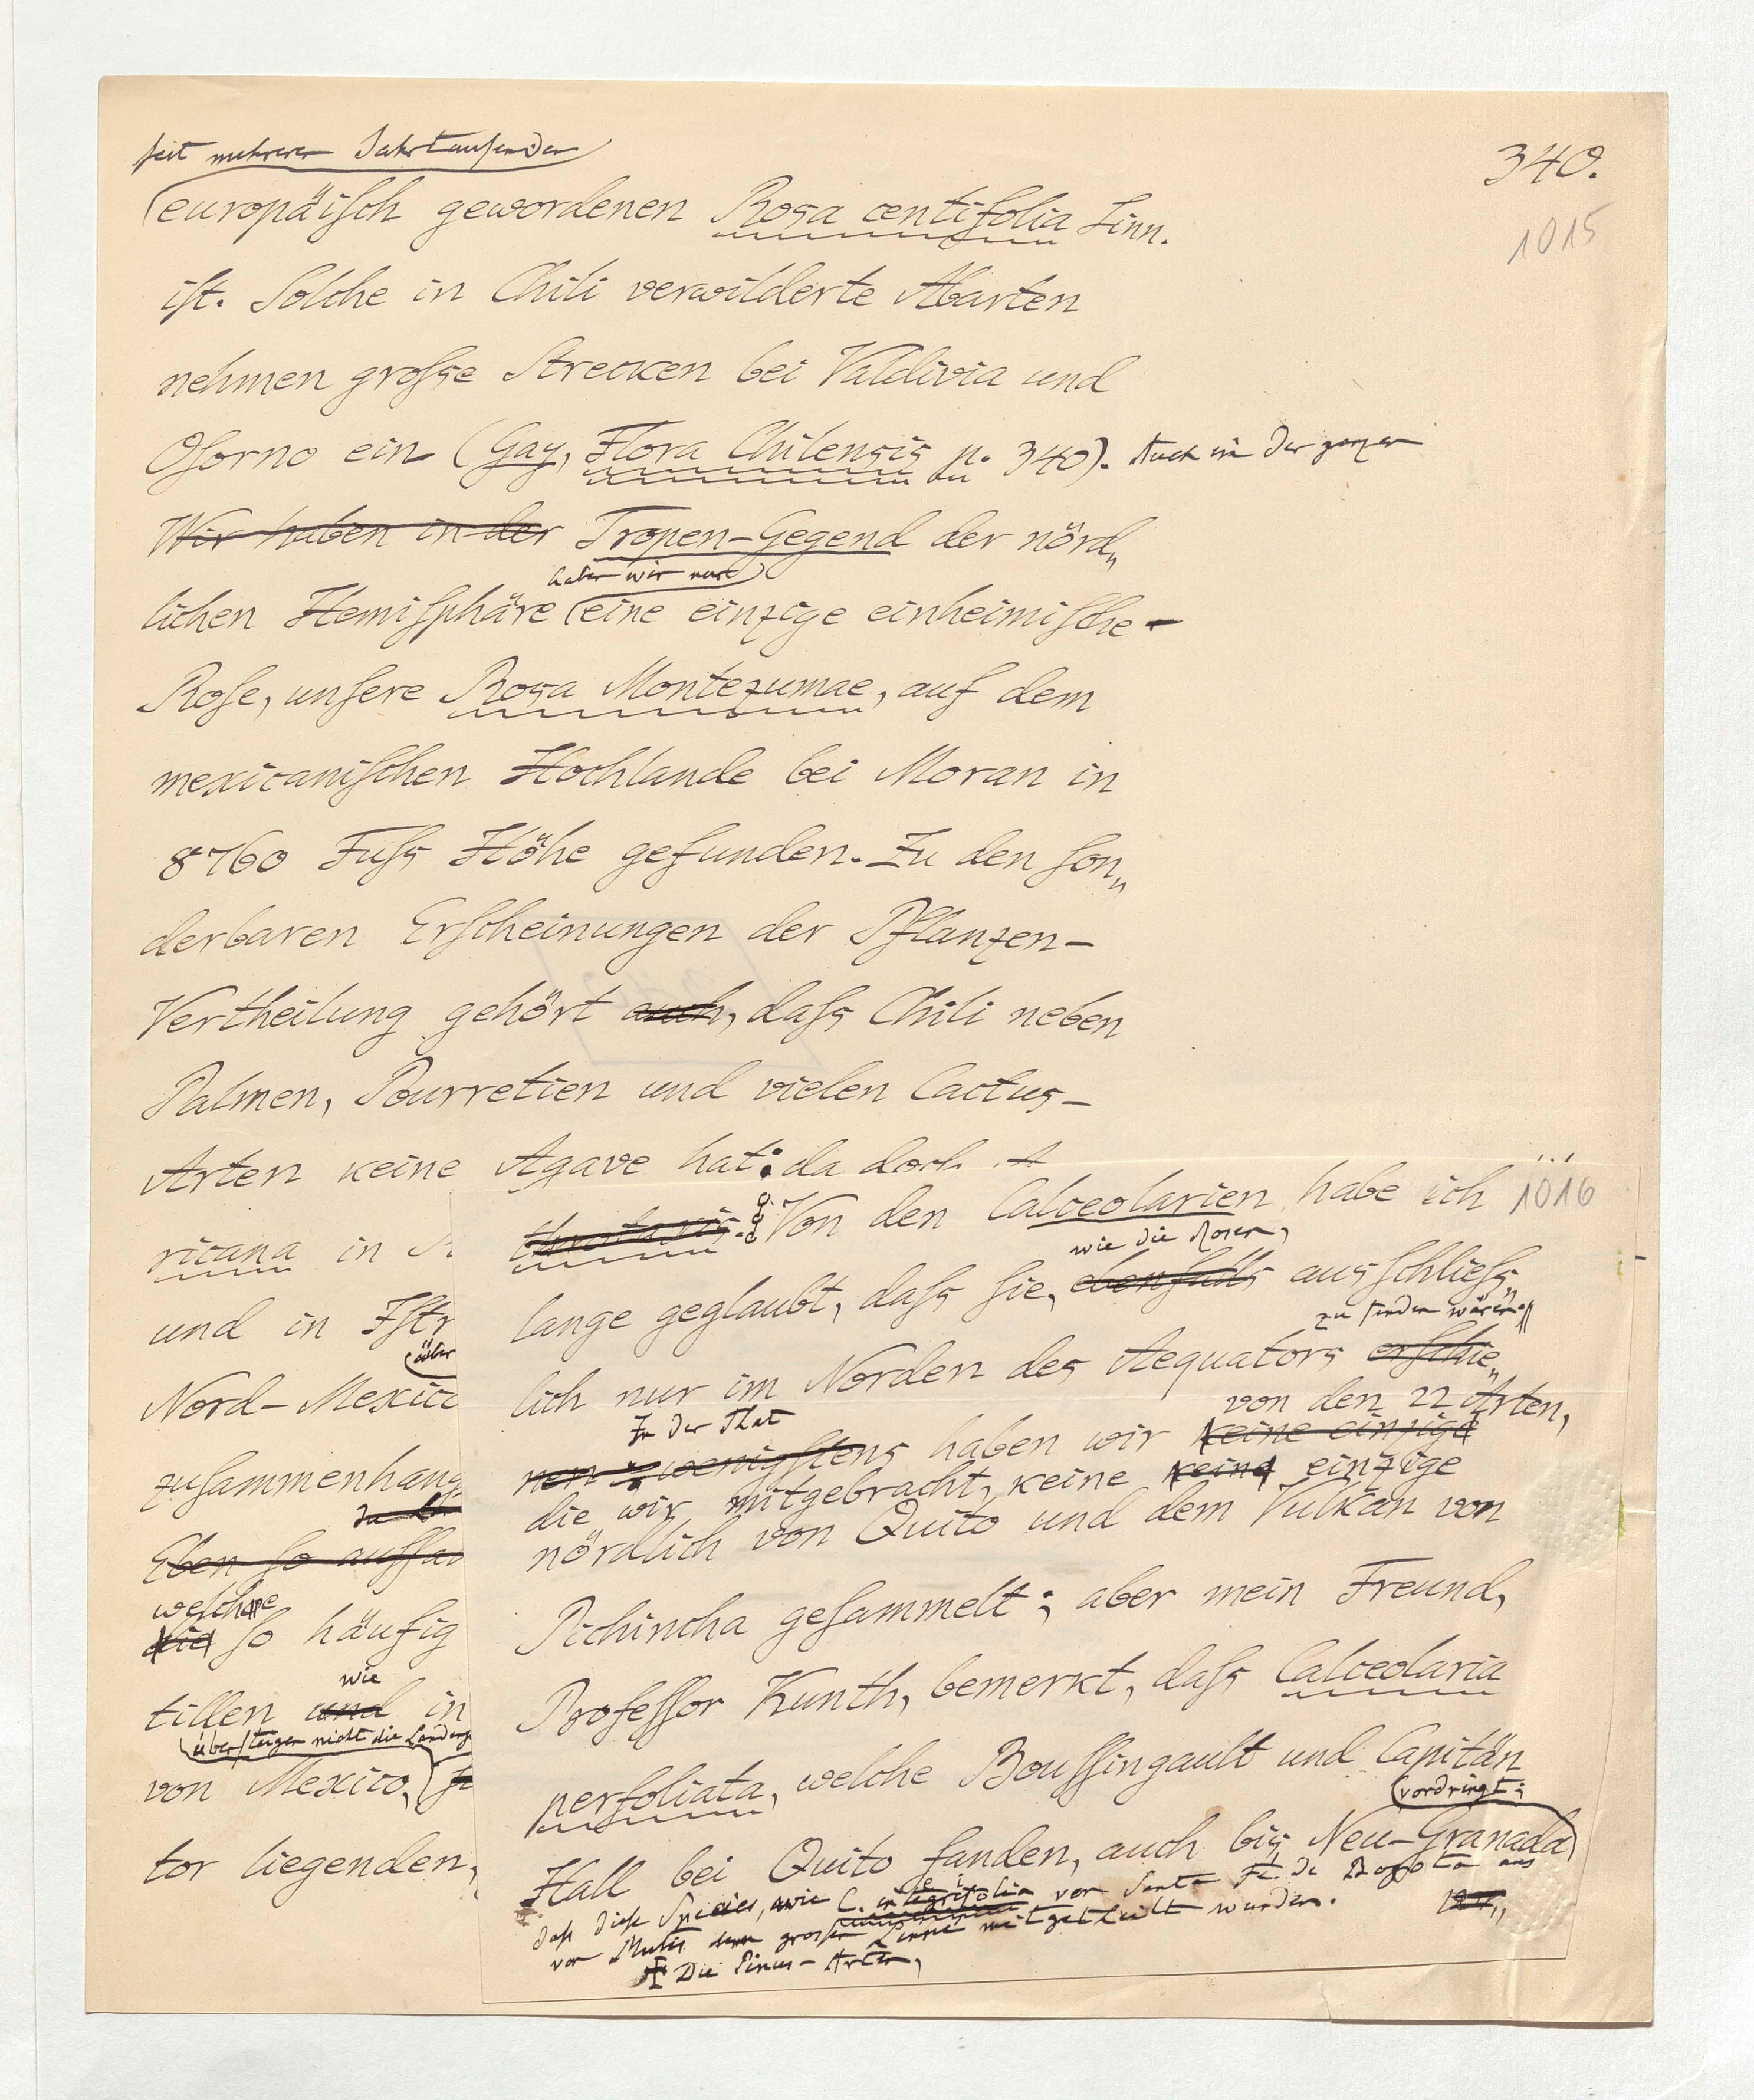 340.
1015
seit mehreren Jahrtausenden
europäiſch gewordenen Rosa centifolia Linn.
iſt. Solche in Chili verwilderte Abarten
nehmen groſse Strecken bei Valdivia und
Oſorno ein (Gay, Flora Chilensis p. 340). Auch in der ganzen
Wir haben in der Tropen-Gegend der nörd„
haben wir nur
lichen Hemiſphäre eine einzige einheimiſche
Roſe, unſere Rosa Montezumae, auf dem
mexicaniſchen Hochlande bei Moran in
8760 Fuſs Höhe gefunden. Zu den ſon„
derbaren Erſcheinungen der Pflanzen-
Vertheilung gehört auch, daſs Chili neben
Palmen, Pourretien und vielen Cactus-
Arten keine Agave hat: da doch A
ricana in
und in Iſtr
über
Nord-Mexic
zuſammenhang
Eben ſo auffal
welche
die ſo häufig
wie
tillen und in
überſteigen nicht die Landenge
von Mexico,
tor liegenden,
1016
Von den Calceolarien habe ich
wie die Rosen,
lange geglaubt, daſs ſie, ebenfalls ausſchlieſs„
zu finden wären:
lich nur im Norden des Aequators erſchie„
In der That
von den 22 Arten,
nen: wenigſtens haben wir keine einzige
die wir mitgebracht, keine keine einzige
nördlich von Quito und dem Vulkan von
Pichincha geſammelt; aber mein Freund,
Profeſſor Kunth, bemerkt, daſs Calceolaria
perfoliata, welche Bouſſingault und Capitän
vordringt;
Hall bei Quito fanden, auch bis Neu-Granada
daſs dieſe Species, wie C. integrifolia von Santa Fé de Bogota aus
von Mutis dem groſsen Linné mitgetheilt wurden.
Die Pinus-Arten,